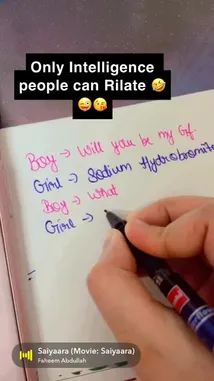 Only Intelligence
people can Rilate 🤣
😜😘
Boy → Will you be my Gf
Girl → Sodium Hydrobromite
Boy → What
Girl →
Saiyaara (Movie: Saiyaara)
Faheem Abdullah